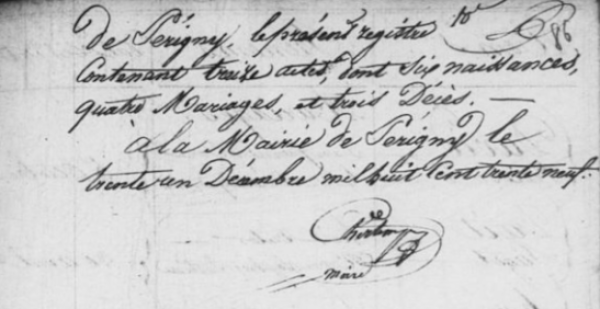 de Périgny, le présent registre
Contenant treize actes, dont six naissances,
quatre Mariages, et trois Décès. —
à la Mairie de Périgny le
trente un Décembre mil huit Cent trente neuf.
maire